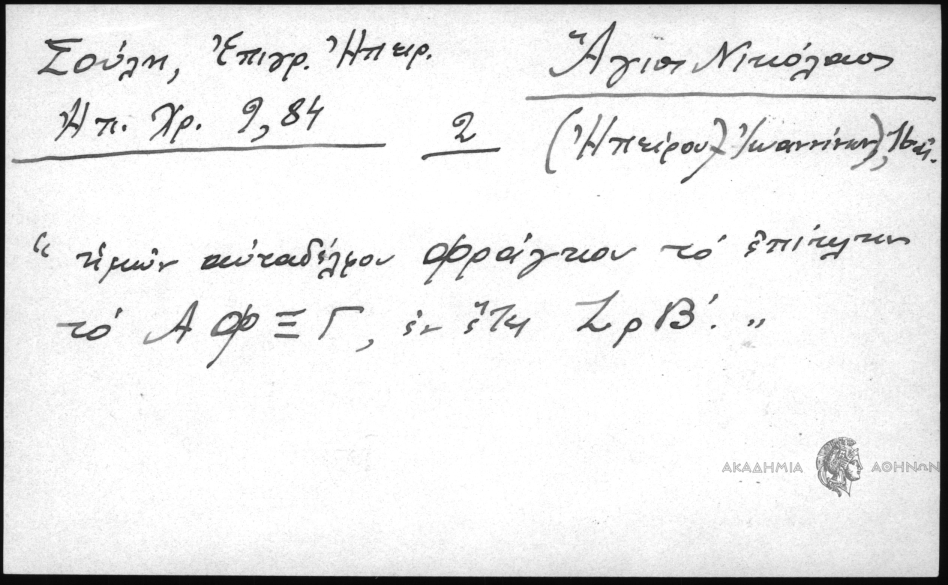 Σούλη, Ἐπιγρ. Ἠπειρ.
Ἠπ. Χρ. 9, 84
2
Ἅγιος Νικόλαος
(Ἠπείρου) Ἰωαννίνων),
“ ἡμῶν αὐταδέλφου Φράγκου τὸ ἐπίκλην
τὸ ΑΦΞΓ, ἐν ἔτει ΖρΒ΄. „
ΑΚΑΔΗΜΙΑ ΑΘΗΝΩΝ